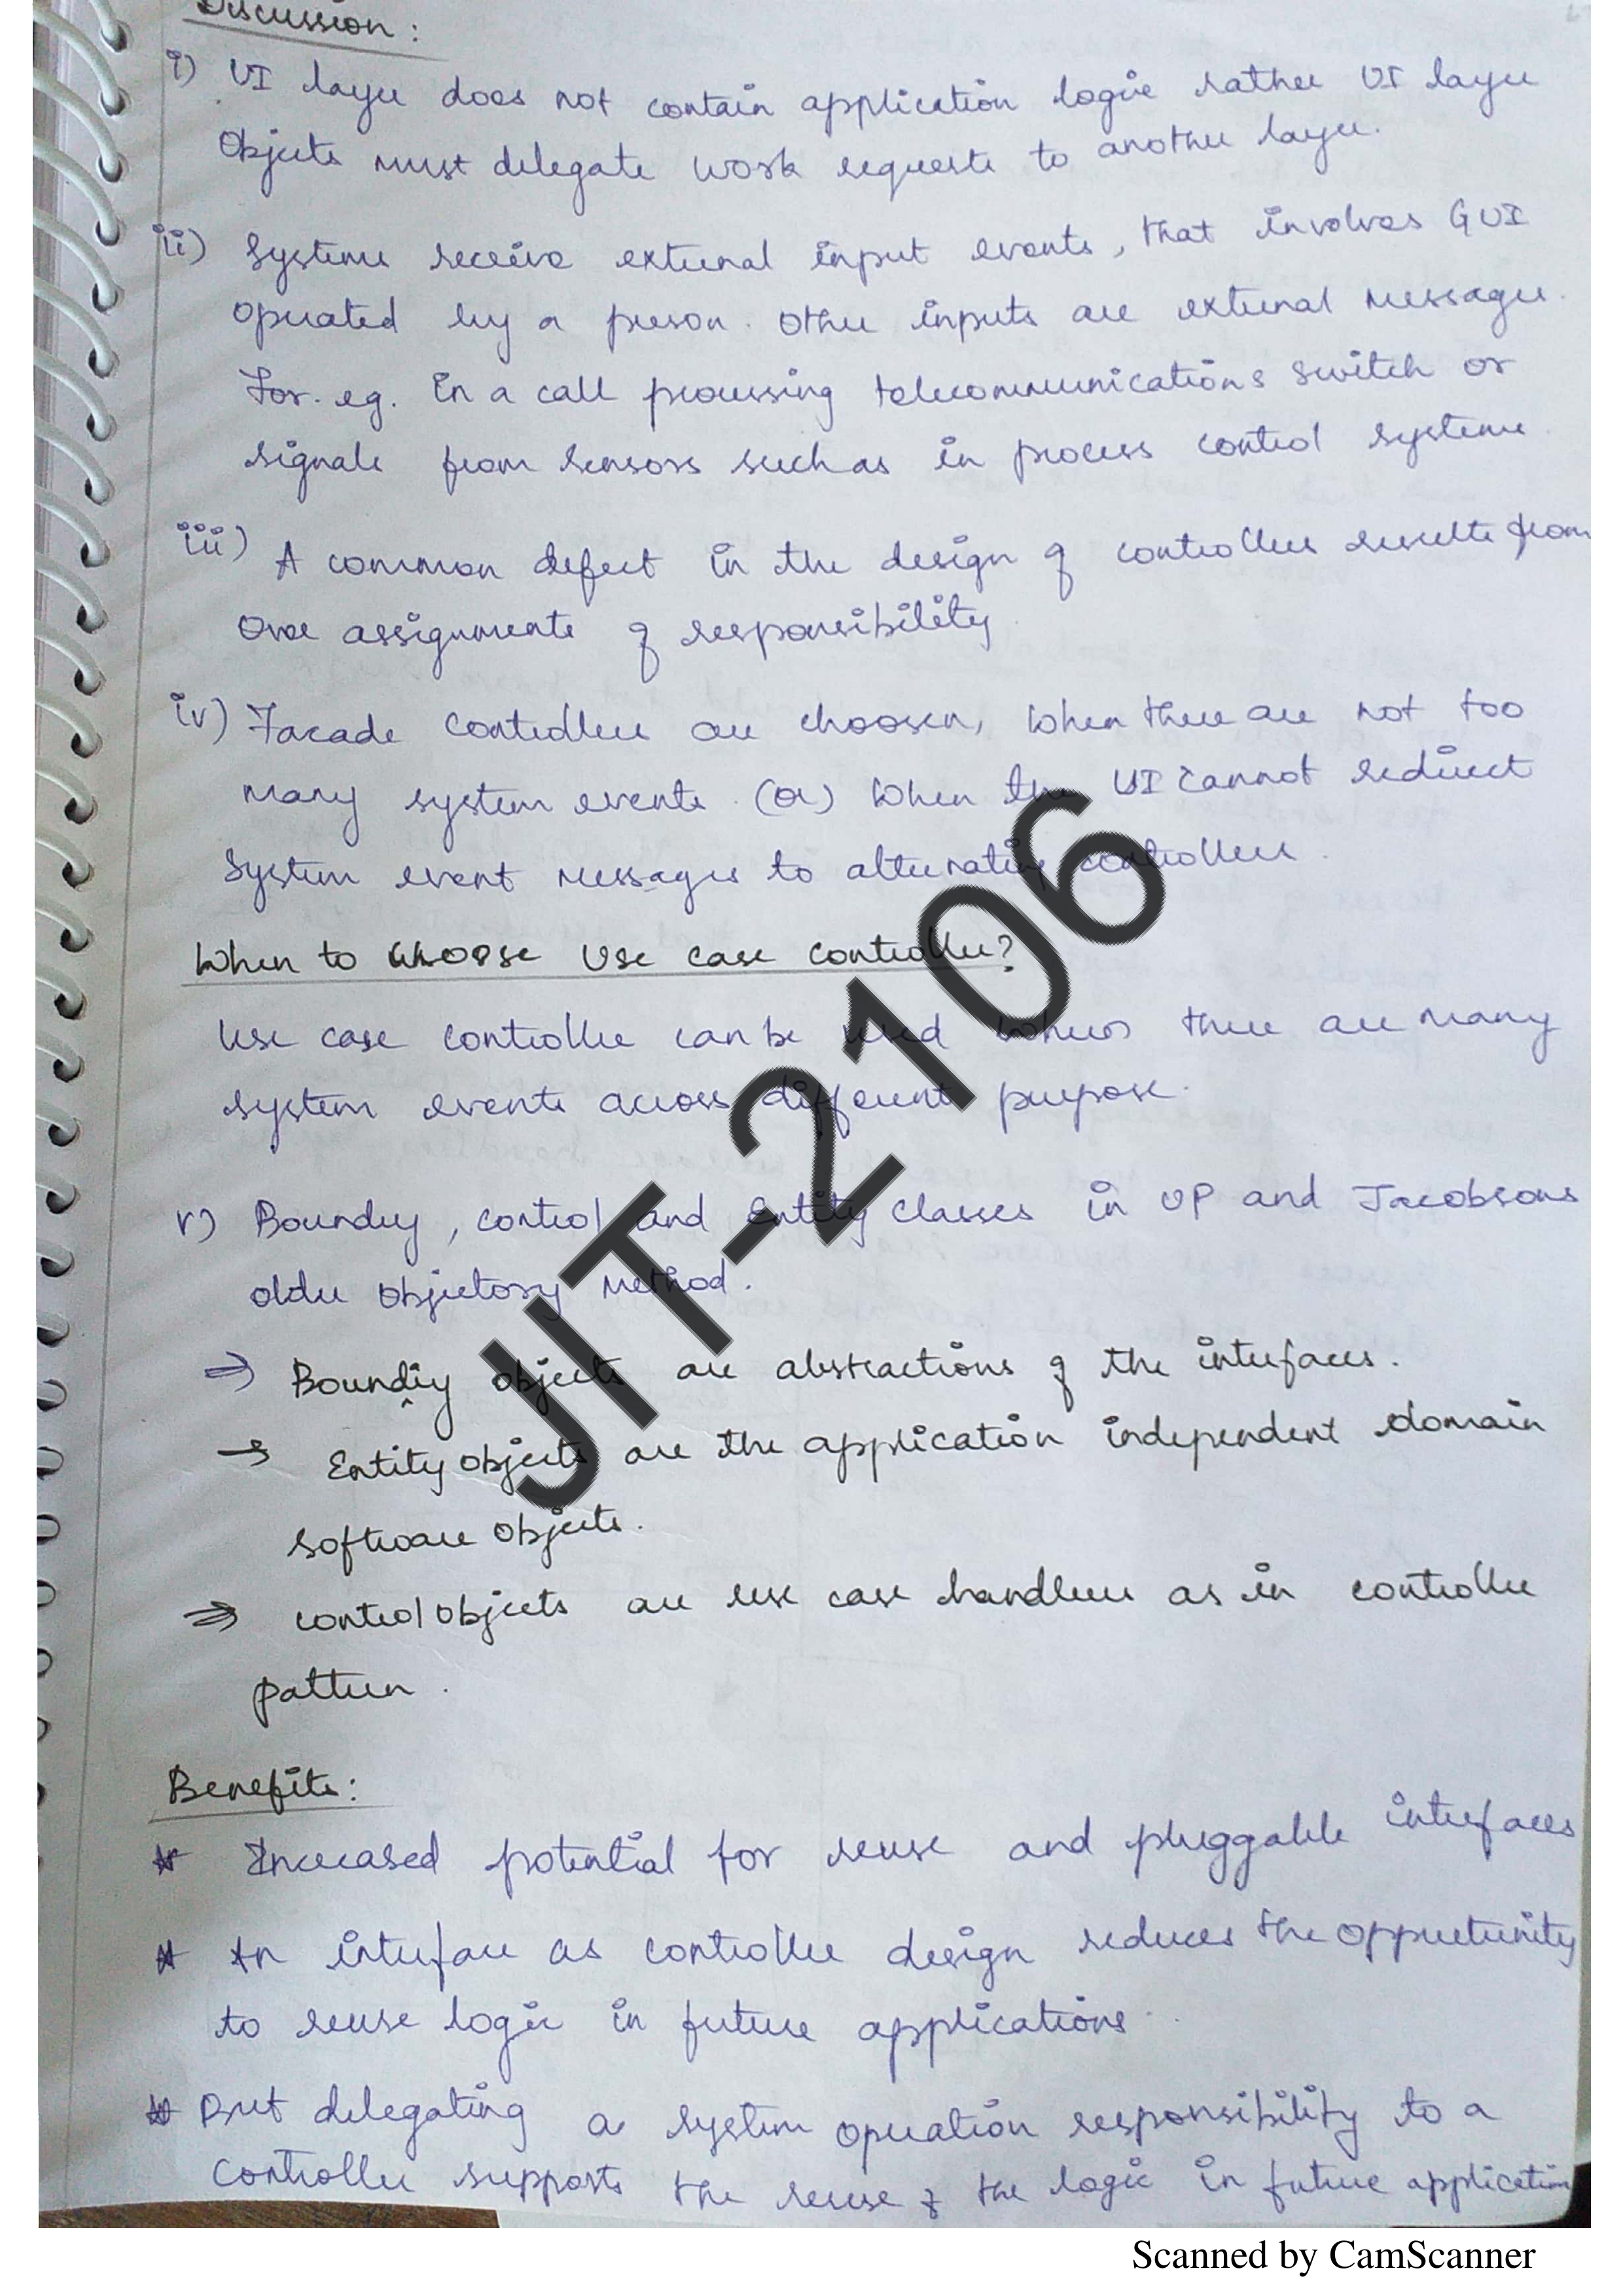 Discussion :
i) UI layer does not contain application logic rather UI layer
Objects must delegate work requests to another layer.
ii) Systems receive external input events, that involves GUI
operated by a person. Other inputs are external messages.
For. eg. in a call processing telecommunications switch or
signals from sensors such as in process control systems.
iii) A common defect in the design of controllers results from
Over assignments of responsibility.
iv) Facade controllers are choosen, when there are not too
many system events. (Or) When the UI cannot redirect
System event messages to alternating controllers.
When to choose Use case controller?
Use case controller can be used when there are many
system events across different purpose.
v) Boundry, control and Entity classes in UP and Jacobsons
older Objectory Method.
⇒ Boundry objects are abstractions of the interfaces.
→ Entity objects are the application independent domain
software objects.
⇒ control objects are use case handlers as in controller
pattern.
Benefits:
* Increased potential for reuse and pluggable interfaces
* An interface as controller design reduces the oppurtunity
to reuse logic in future applications.
* But delegating a system operation responsibility to a
controller supports the reuse of the logic in future application
JIT-2106
Scanned by CamScanner